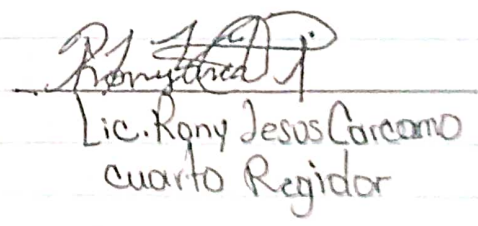 Lic. Rony Jesus Carcamo
cuarto Regidor